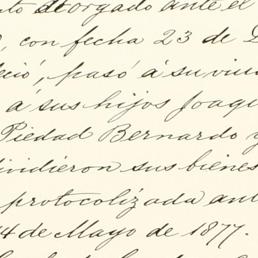 otorgado ante el
, con fecha 23 de
ció, pasó á su viu
á sus hijos Joaqu
Piedad Bernardo y
vidieron sus bienes
protocolizada an
4 de Mayo de 1877.